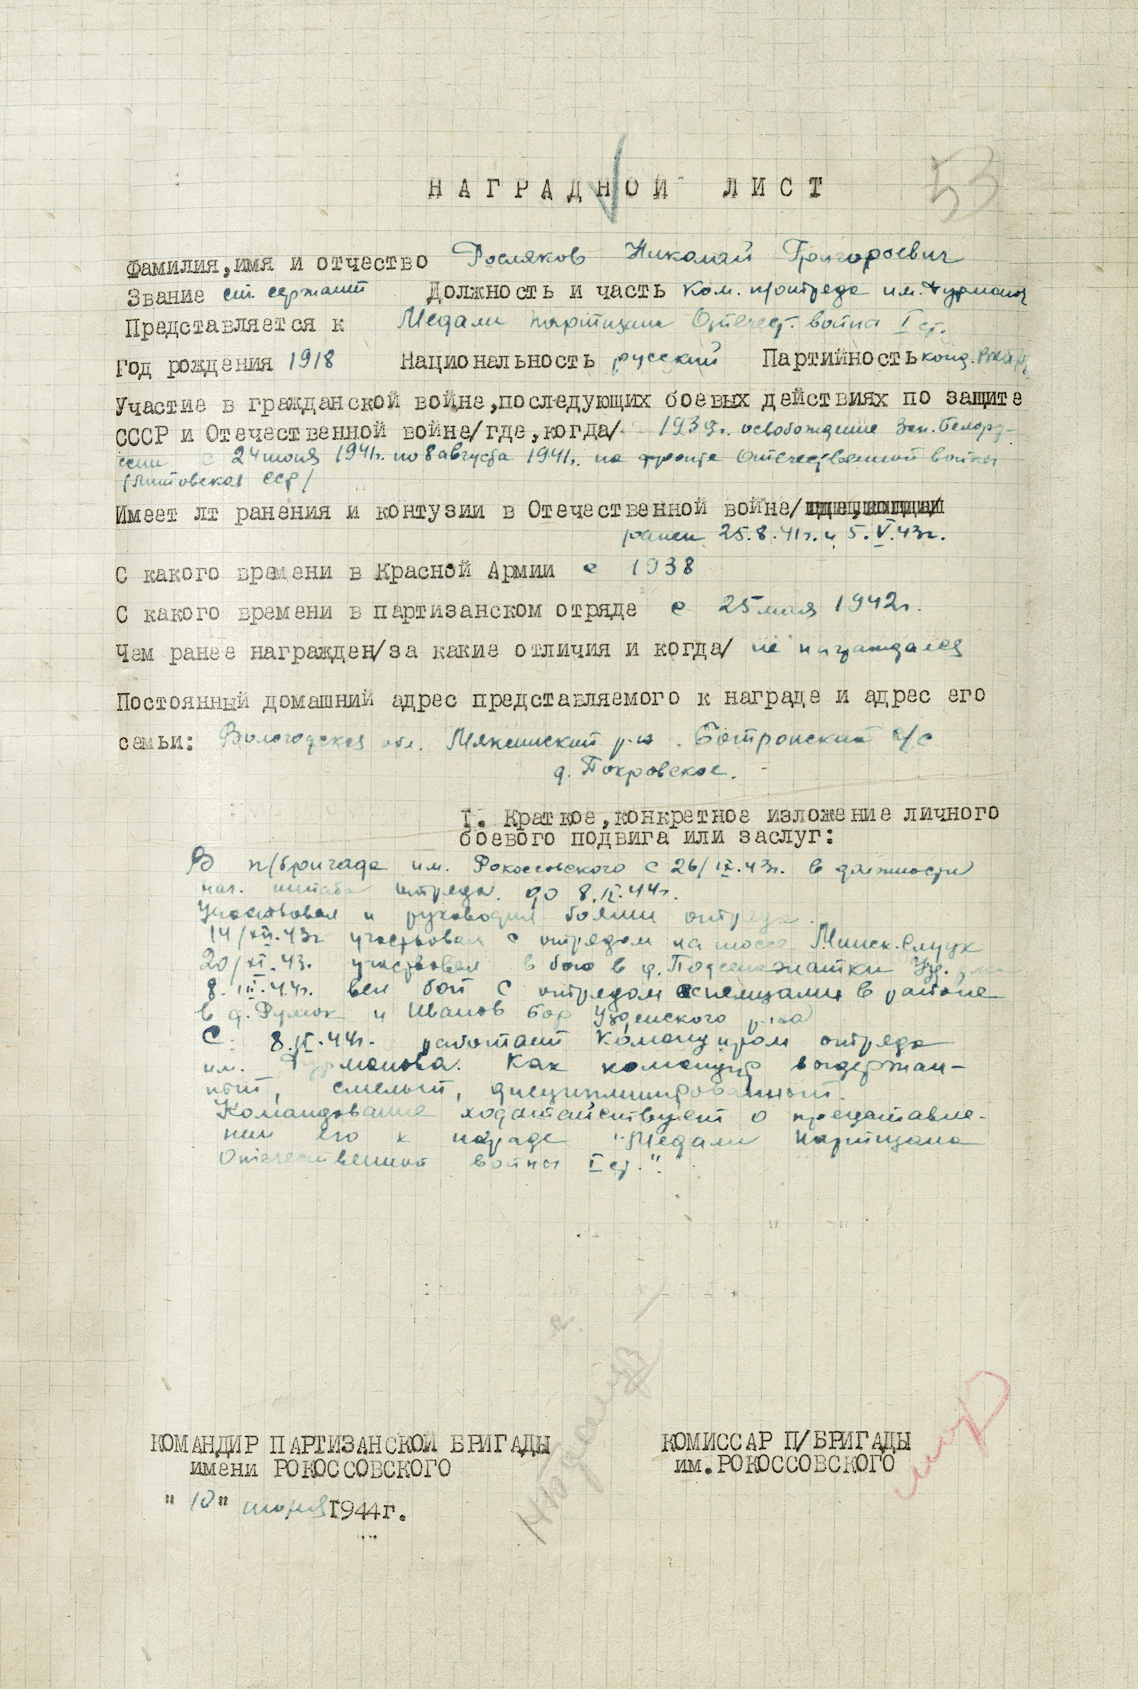 53
НАГРАДНОЙ ЛИСТ
Фамилия,имя и отчество Росляков Николай Григорьевич
Звание ст. сержант Должность и часть Ком. п/отряда им. Фурманова
Представляется к Медали Партизан Отечест. война I ст.
Год рождения 1918 Национальность русский Партийность канд.
Участие в гражданской войне,последующих боевых действиях по защите
СССР и Отечественной войне/где,когда/ 1939г. освобождение Зап. Белорус-
сии с 24 июня 1941г. по 8 августа 1941г. на фронте Отечественной войны
/Литовская ССР/
Имеет лт ранения и контузии в Отечественной войне/
ранен 25.8.41г. и 5.V.43г.
С какого времени в Красной Армии с 1938
С какого времени в партизанском отряде с 25 мая 1942г.
Чем ранее награжден/за какие отличия и когда/ не награждался
Постоянный домашний адрес представляемого к награде и адрес его
семьи: Вологодская обл. Мяксинский р-н. с/с
д. Покровское.
I. Краткое,конкретное изложение личного
боевого подвига или заслуг:
В п/бригаде им. Рокоссовского с 26/IX.43г. в должности
нач. штаба отряда до 8.IV.44г.
Участвовал и руководил боями отряда.
14/XII.43г участвовал с отрядом на шоссе Минск-Слуцк
20/XI.43г. участвовал в бою в д. Узд. р-на
8.III.44г. вел бой с отрядом с немцами в районе
в д. и Иванов Бор Узденского р-на
С 8.IV.44г. работает командиром отряда
им. Фурманова. Как командир выдержан-
ный, смелый, дисциплинированный.
Командование ходатайствует о представле-
нии его к награде "Медали Партизана
Отечественной войны I ст.".
КОМАНДИР ПАРТИЗАНСКОЙ БРИГАДЫ
имени РОКОССОВСКОГО
КОМИССАР П/БРИГАДЫ
им.РОКОССОВСКОГО
"10" июня 1944г.